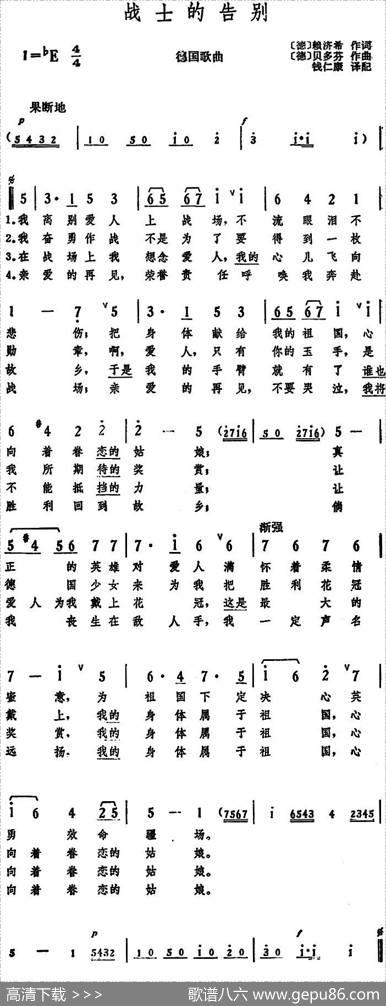 战士的告别
1=♭E 4/4
德国歌曲
〔德〕赖济希 作词
〔德〕贝多芬 作曲
钱仁康 译配
果断地
p
f
(5432 | 10 50 10 2 | 3 i·i i) |
5 | 3· 1 5 3 | 65 67 i i | 6 4 2 1
1.我 离别爱人 上战场,不 流眼泪不
2.我 奋勇作战 不是为了要 得到一枚
3.在 战场上我 想念爱人,我的 心儿飞向
4.亲 爱的再见,荣誉责任呼 唤我奔赴
1 — 7 5 | 3· 1 5 3 | 65 67 i i
悲伤;把 身体献给 我的祖国,心
勋章,啊,爱人,只有 你的玉手,是
故乡,于是 我的手臂 就有了谁也
战场;亲 爱的再见,不要哭泣,我将
6 #4 2 2 | 2 — 5 (2716 | 50 2716) 5 —
向着眷恋的 姑娘; 真
我所期待的 奖赏; 让
不能抵挡的 力量; 让
胜利回到故 乡; 倘
渐强
5 #4 56 7 7 | 7· i 6 6 | 7 6 7 6
正的英雄对 爱人满 怀着柔情
德国少女来 为我把 胜利花冠
爱人为我戴上花 冠,这是 最大的
我丧生在敌 人手,我 一定声名
7 — i 5 | 6· 6 7· 5 | i 6 2 7
蜜意,为 祖国下定 决心英
戴上,我的 身体属于 祖国,心
奖赏,我的 身体属于 祖国,心
远扬,我的 身体属于 祖国,心
i 6 4 25 | 5 — 1 (7567 | i 6543 4 2345
勇效命 疆场。
向着眷恋的 姑娘。
向着眷恋的 姑娘。
向着眷恋的 姑娘。
p
f
5 — 1 5432 | 10 50 10 20 | 30 i·i i) |
高清下载 >>>
歌谱八六 www.gepu86.com